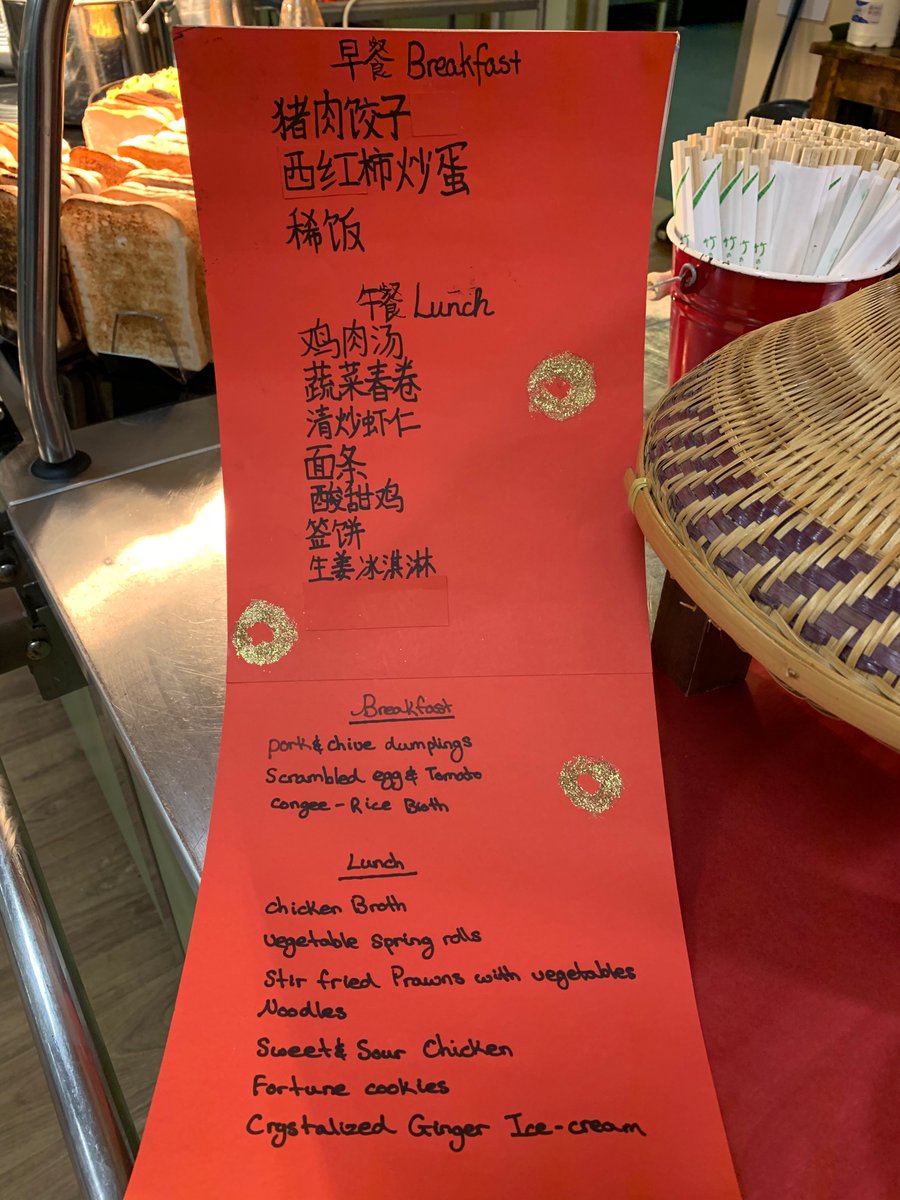 早餐 Breakfast
猪肉饺子
西红柿炒蛋
稀饭
午餐 Lunch
鸡肉汤
蔬菜春卷
清炒虾仁
面条
酸甜鸡
签饼
生姜冰淇淋
Breakfast
pork & chive dumplings
Scrambled egg & Tomato
congee - Rice Broth
Lunch
chicken Broth
vegetable spring rolls
Stir fried Prawns with vegetables
Noodles
Sweet & Sour Chicken
Fortune cookies
Crystalized Ginger Ice-cream
竹 竹 竹 竹